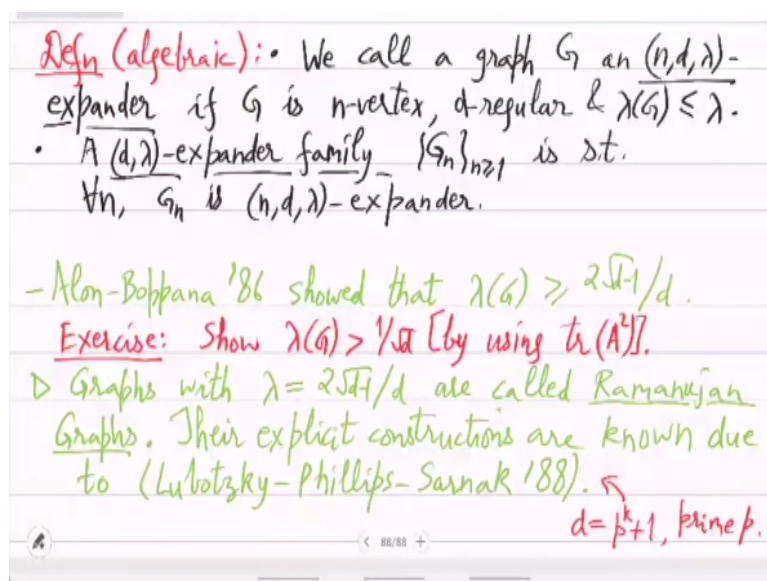 Defn (algebraic): • We call a graph G an (n,d,λ)-
expander if G is n-vertex, d-regular & λ(G) ≤ λ.
• A (d,λ)-expander family {Gₙ}ₙ≥₁ is s.t.
∀n, Gₙ is (n,d,λ)-expander.
- Alon-Boppana '86 showed that λ(G) ≥ 2√d-1/d.
Exercise: Show λ(G) > 1/√d [by using tr(A²)].
▷ Graphs with λ = 2√d-1/d are called Ramanujan
Graphs. Their explicit constructions are known due
to (Lubotzky-Phillips-Sarnak '88).
d = pᵏ+1, prime p.
< 88/88 +